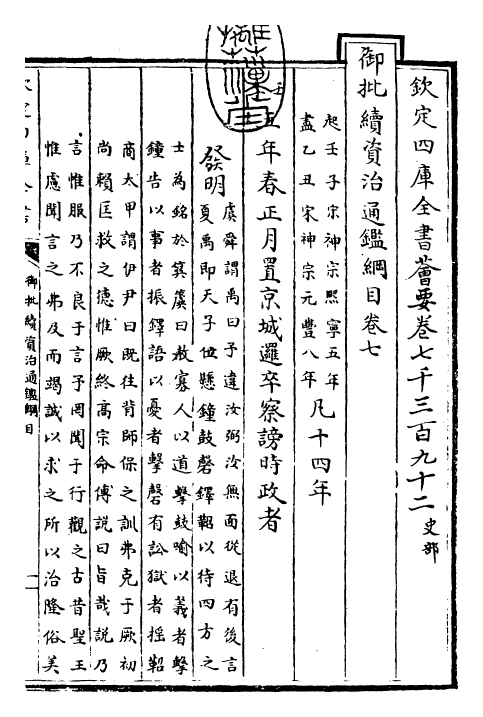 欽定四庫全書薈要卷七千三百九十二 史部
御批續資治通鑑綱目卷七
起壬子宋神宗熙寧五年
盡乙丑宋神宗元豐八年 凡十四年
五年春正月置京城邏卒察謗時政者
發明
虞舜謂禹曰予違汝弼汝無面從退有後言
夏禹即天子位懸鐘鼓磬鐸鞀以待四方之
士為銘於簨簴曰教寡人以道擊鼓喻以義者擊
鐘告以事者振鐸語以憂者擊磬有訟獄者揺鞀
商太甲謂伊尹曰既往背師保之訓弗克于厥初
尚賴匡救之德惟厥終高宗命傅說曰旨哉說乃
言惟服乃不良于言予罔聞于行觀之古昔聖王
惟慮聞言之弗及而竭誠以求之所以治隆俗美
御批續資治通鑑綱目
一